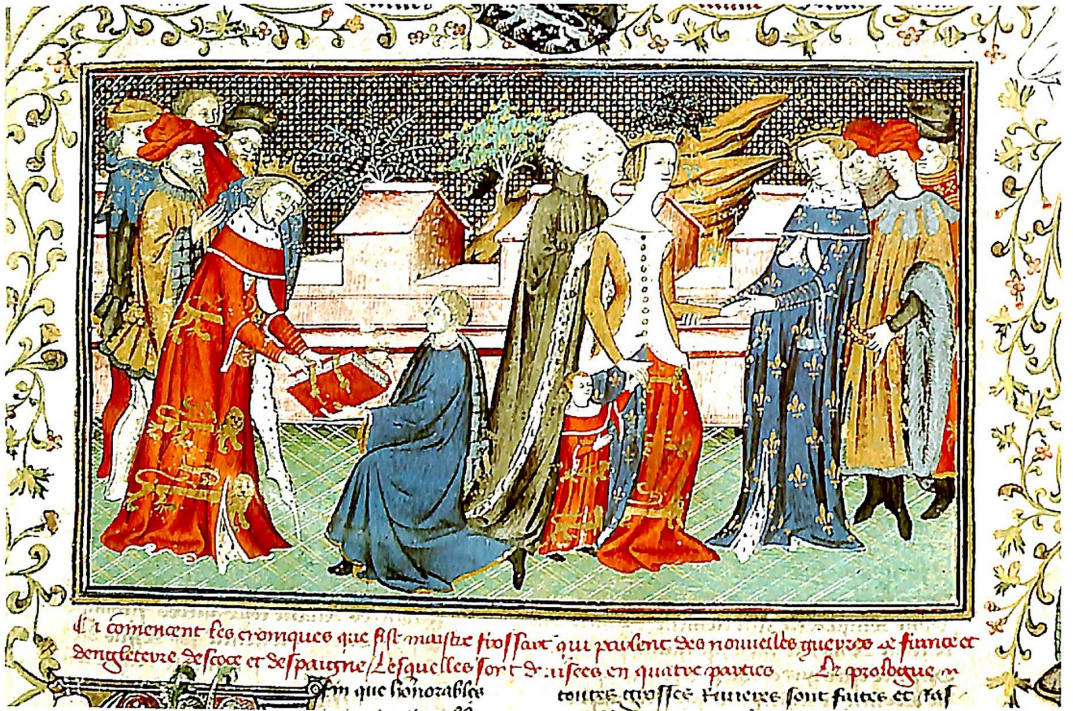 Ci comencent les croniques que fist maistre froissart qui parlent des nouvelles guerres de france et
dengleterre descoce et despaigne Lesquelles sont diuisees en quatre parties Le prologue
fin que honorables
toutes grosses Riuieres sont faites et